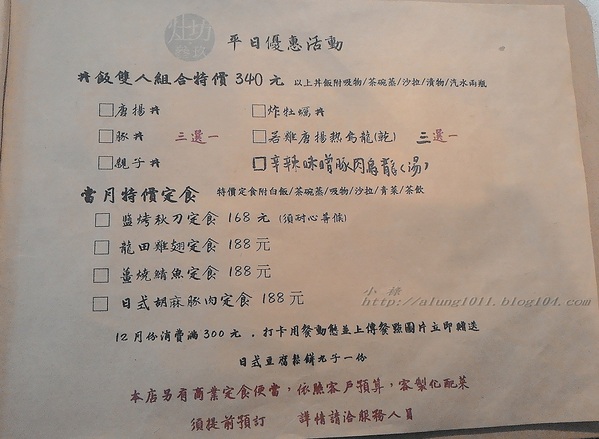 灶坊
平日優惠活動
丼飯雙人組合特價 340 元 以上丼飯附吸物/茶碗蒸/沙拉/漬物/汽水兩瓶
□唐揚丼 □炸牡蠣丼
□豚丼 三選一 □若雞唐揚熱烏龍(乾) 三選一
□親子丼 □辛辣味噌豚肉烏龍(湯)
當月特價定食 特價定食附白飯/茶碗蒸/吸物/沙拉/青菜/茶飲
□ 鹽烤秋刀定食 168 元 (須耐心等候)
□ 龍田雞翅定食 188 元
□ 薑燒鯖魚定食 188 元
□ 日式胡麻豚肉定食 188 元
小祿
http://alung1011.blog104.com
12月份消費滿 300 元，打卡用餐動態並上傳餐點圖片立即贈送
日式豆腐鬆餅丸子一份
本店另有商業定食便當，依照客戶預算，客製化配菜
須提前預訂 詳情請洽服務人員